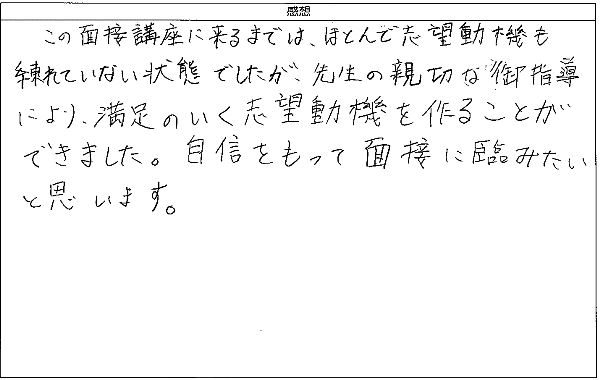 感想
この面接講座に来るまでは、ほとんど志望動機も
練れていない状態でしたが、先生の親切な御指導
により、満足のいく志望動機を作ることが
できました。自信をもって面接に臨みたい
と思います。